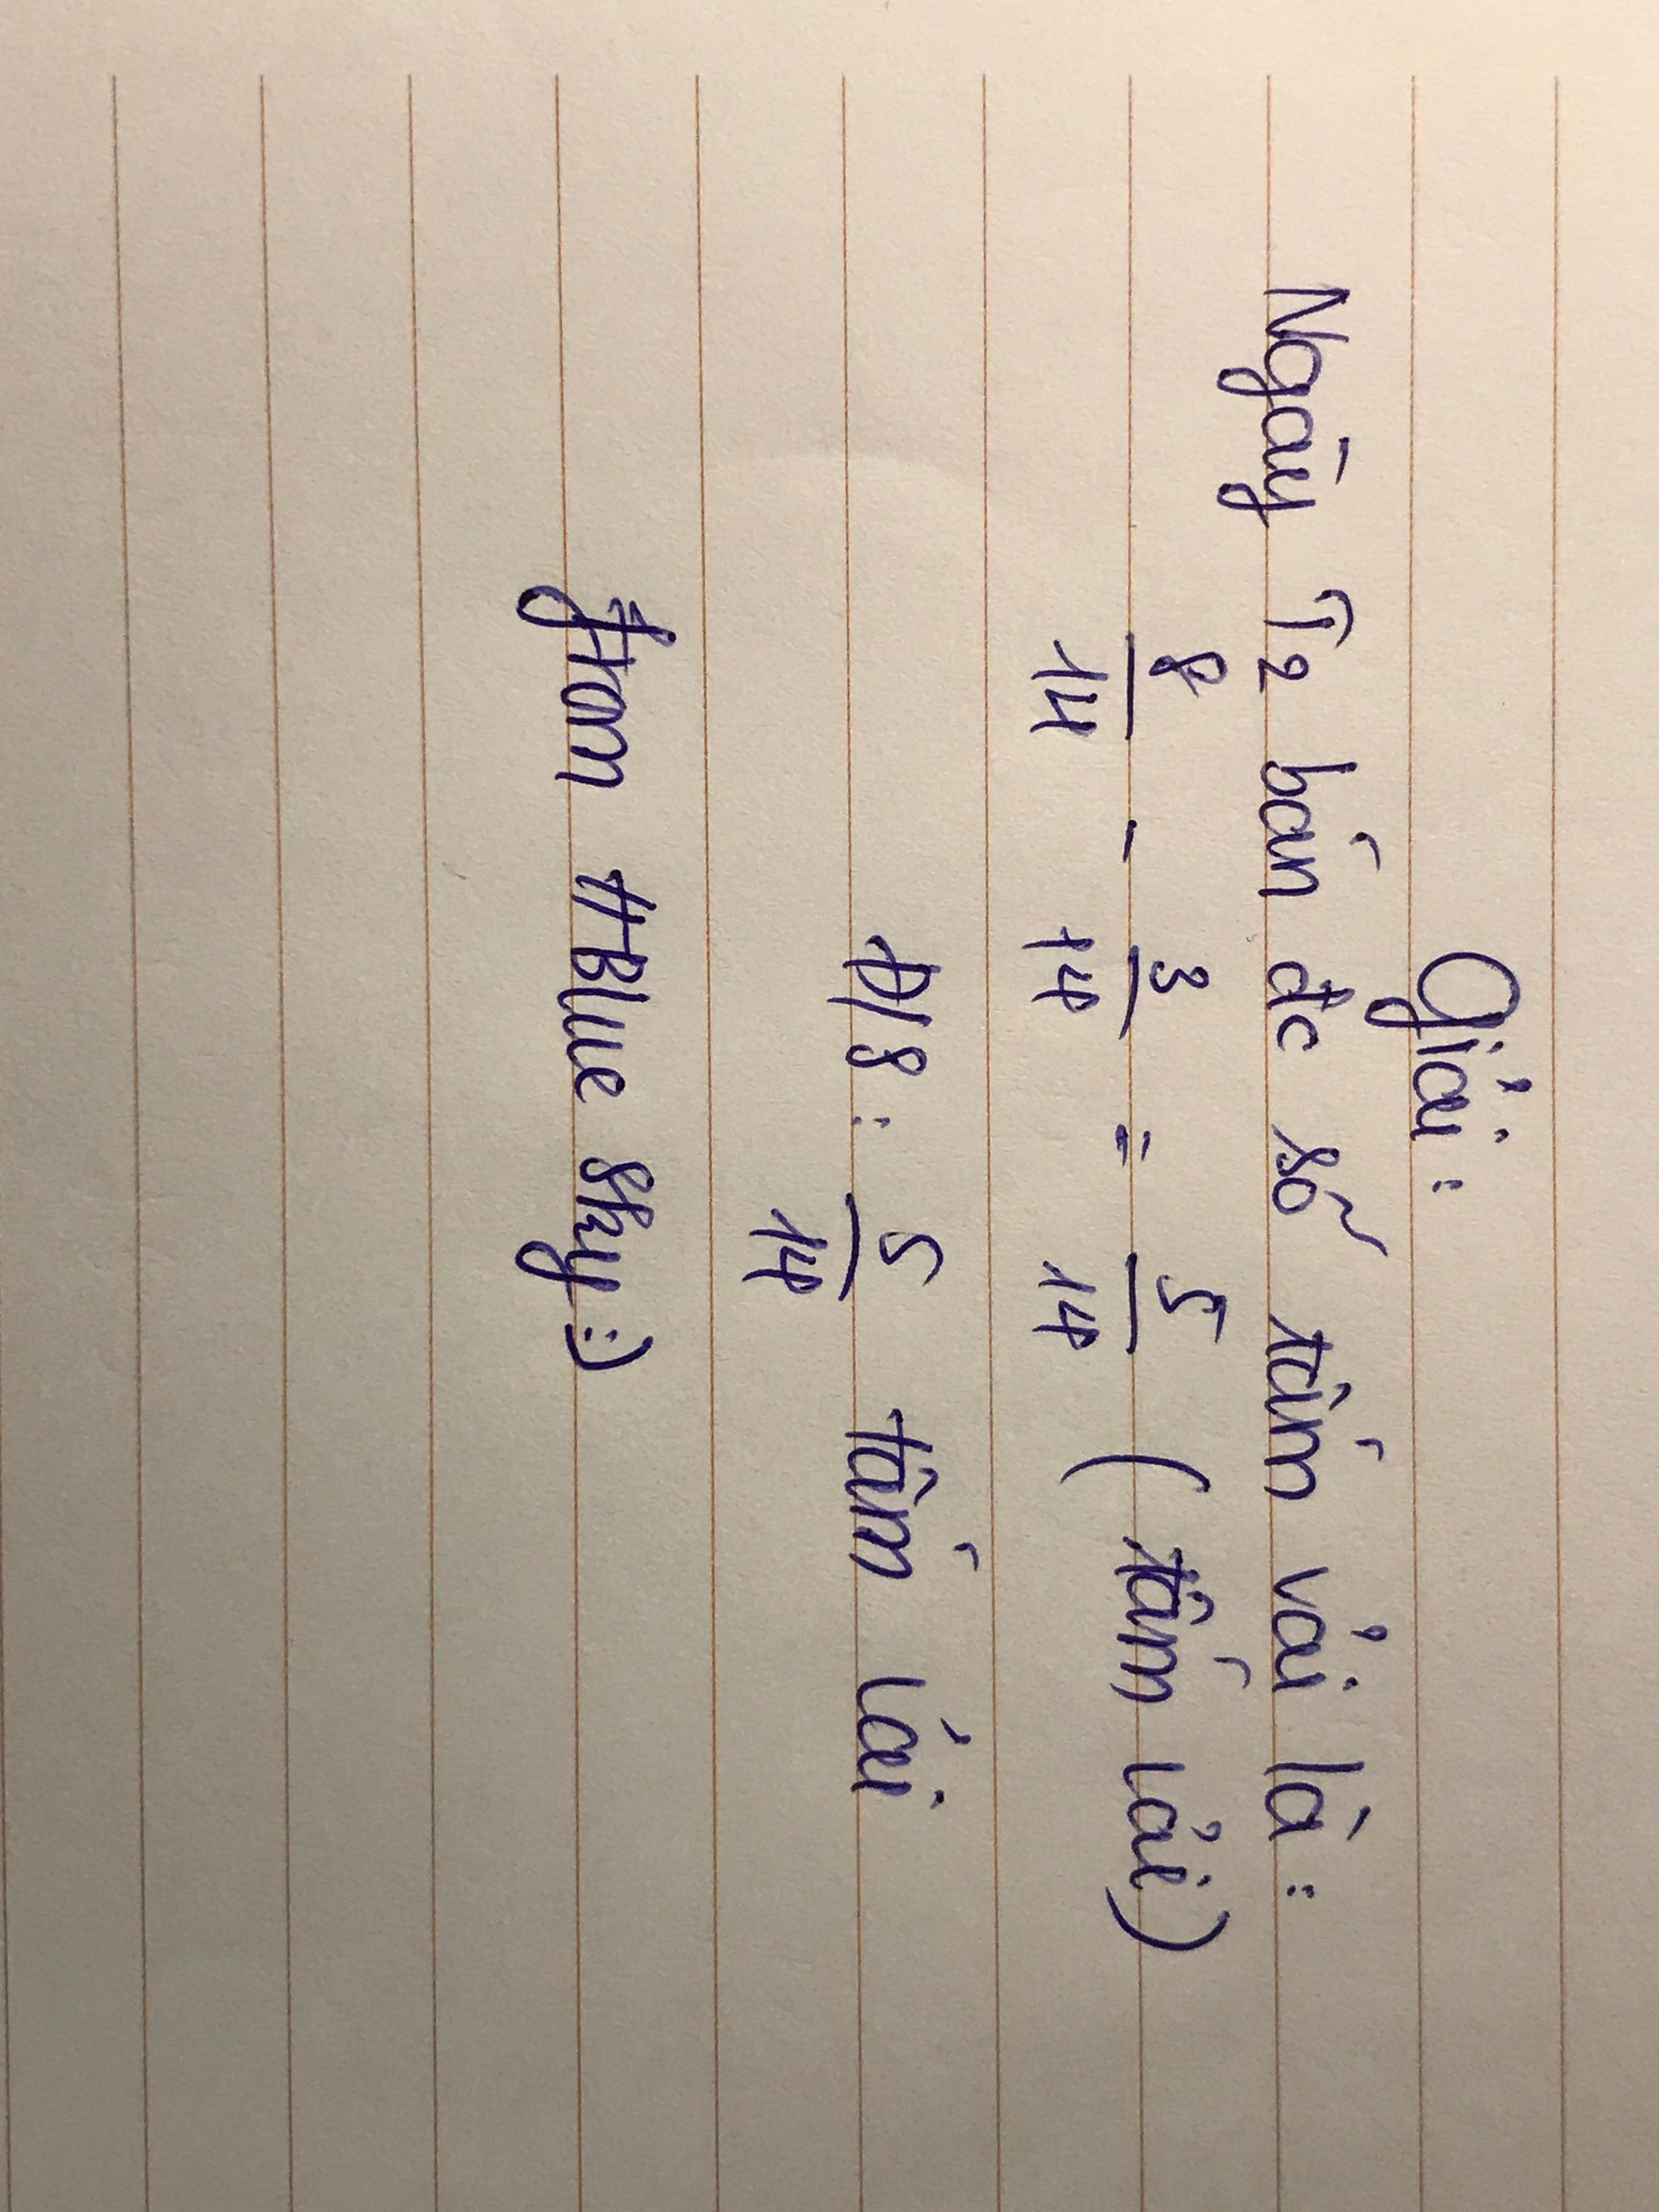 Giải:
Ngày T2 bán đc số tấm vải là:
8/14 - 3/14 = 5/14 (tấm vải)
Đ/S: 5/14 tấm vái
#Ham #Blue Sky :)